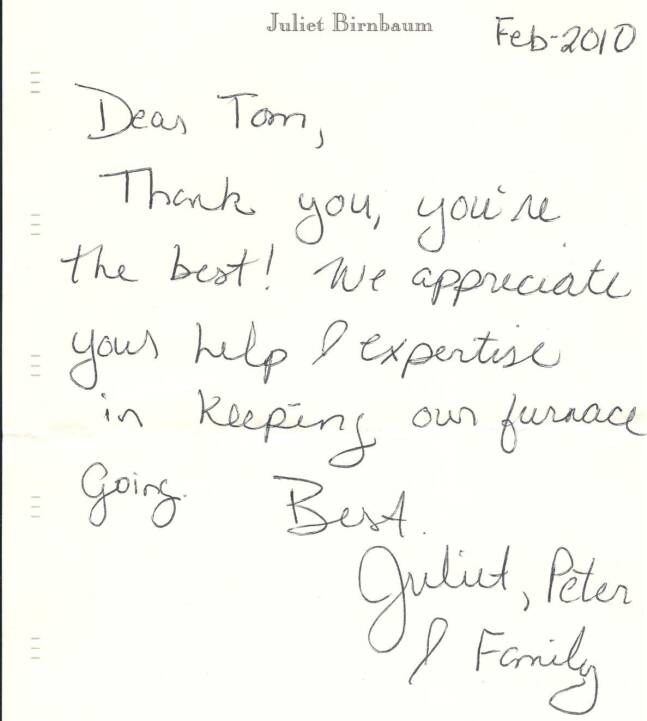 Juliet Birnbaum
Feb-2010
Dear Tom,
Thank you, you're
the best! We appreciate
your help & expertise
in keeping our furnace
going. Best.
Juliet, Peter
& Family